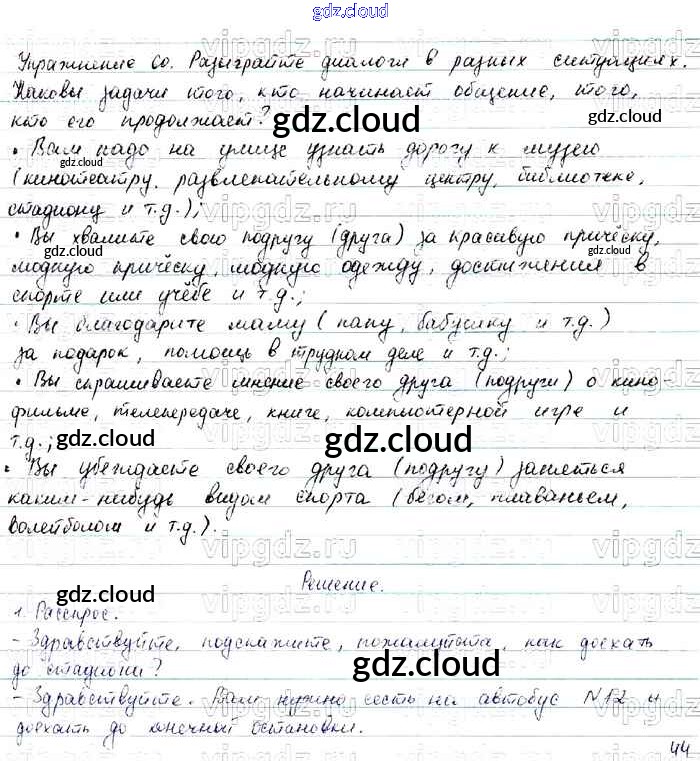 gdz.cloud
Упражнение 60. Разыграйте диалоги в разных ситуациях.
Каковы задачи того, кто начинает общение, того,
кто его продолжает?
• Вам надо на улице узнать дорогу к музею
(кинотеатру, развлекательному центру, библиотеке,
стадиону и т.д.);
• Вы хвалите свою подругу (друга) за красивую причёску,
модную причёску, модную одежду, достижения в
спорте или учёбе и т.д.;
• Вы благодарите маму (папу, бабушку и т.д.)
за подарок, помощь в трудном деле и т.д.;
• Вы спрашиваете мнение своего друга (подруги) о кино-
фильме, телепередаче, книге, компьютерной игре и
т.д.;
• Вы убеждаете своего друга (подругу) заняться
каким-нибудь видом спорта (бегом, плаваньем,
волейболом и т.д.).
Решение.
1. Расспрос.
- Здравствуйте, подскажите, пожалуйста, как доехать
до стадиона?
- Здравствуйте. Вам нужно сесть на автобус N12 и
доехать до конечный остановки.
44